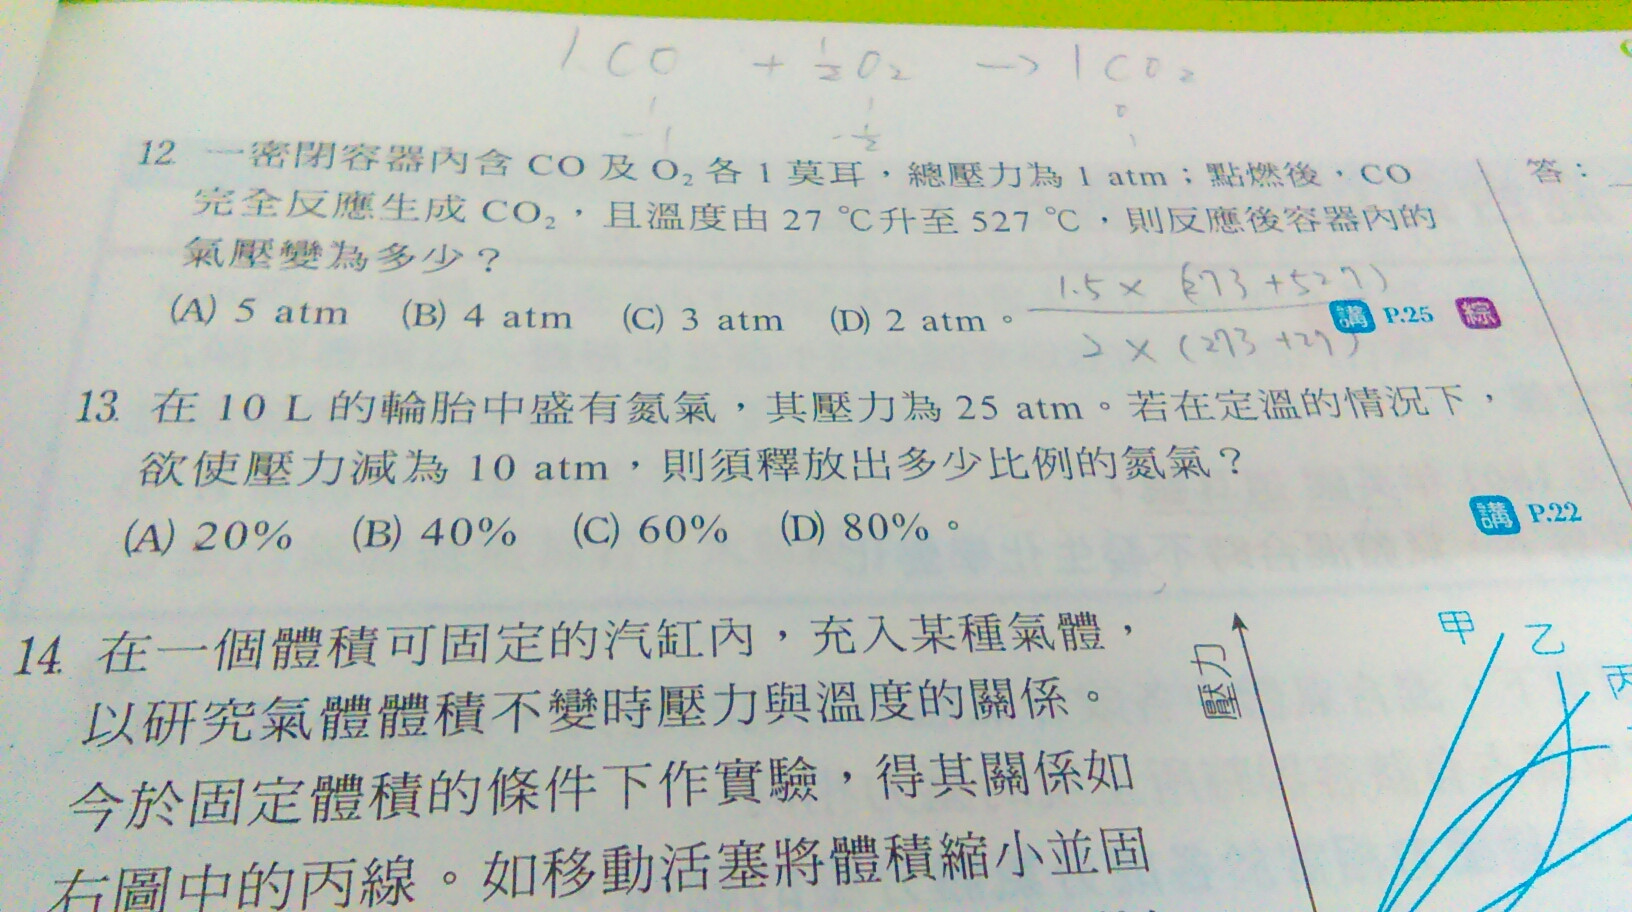 1 CO + ½O₂ → 1 CO₂
1 1 0
-1 -½ 1
12. 一密閉容器內含 CO 及 O₂ 各 1 莫耳，總壓力為 1 atm；點燃後，CO
答：
完全反應生成 CO₂，且溫度由 27 ℃升至 527 ℃，則反應後容器內的
氣壓變為多少？
(A) 5 atm (B) 4 atm (C) 3 atm (D) 2 atm。
1.5 × (273+527)
2 × (273+27)
講 P.25 綜
13. 在 10 L 的輪胎中盛有氮氣，其壓力為 25 atm。若在定溫的情況下，
欲使壓力減為 10 atm，則須釋放出多少比例的氮氣？
(A) 20% (B) 40% (C) 60% (D) 80%。
講 P.22
14. 在一個體積可固定的汽缸內，充入某種氣體，
以研究氣體體積不變時壓力與溫度的關係。
今於固定體積的條件下作實驗，得其關係如
右圖中的丙線。如移動活塞將體積縮小並固
壓力
甲 乙 丙